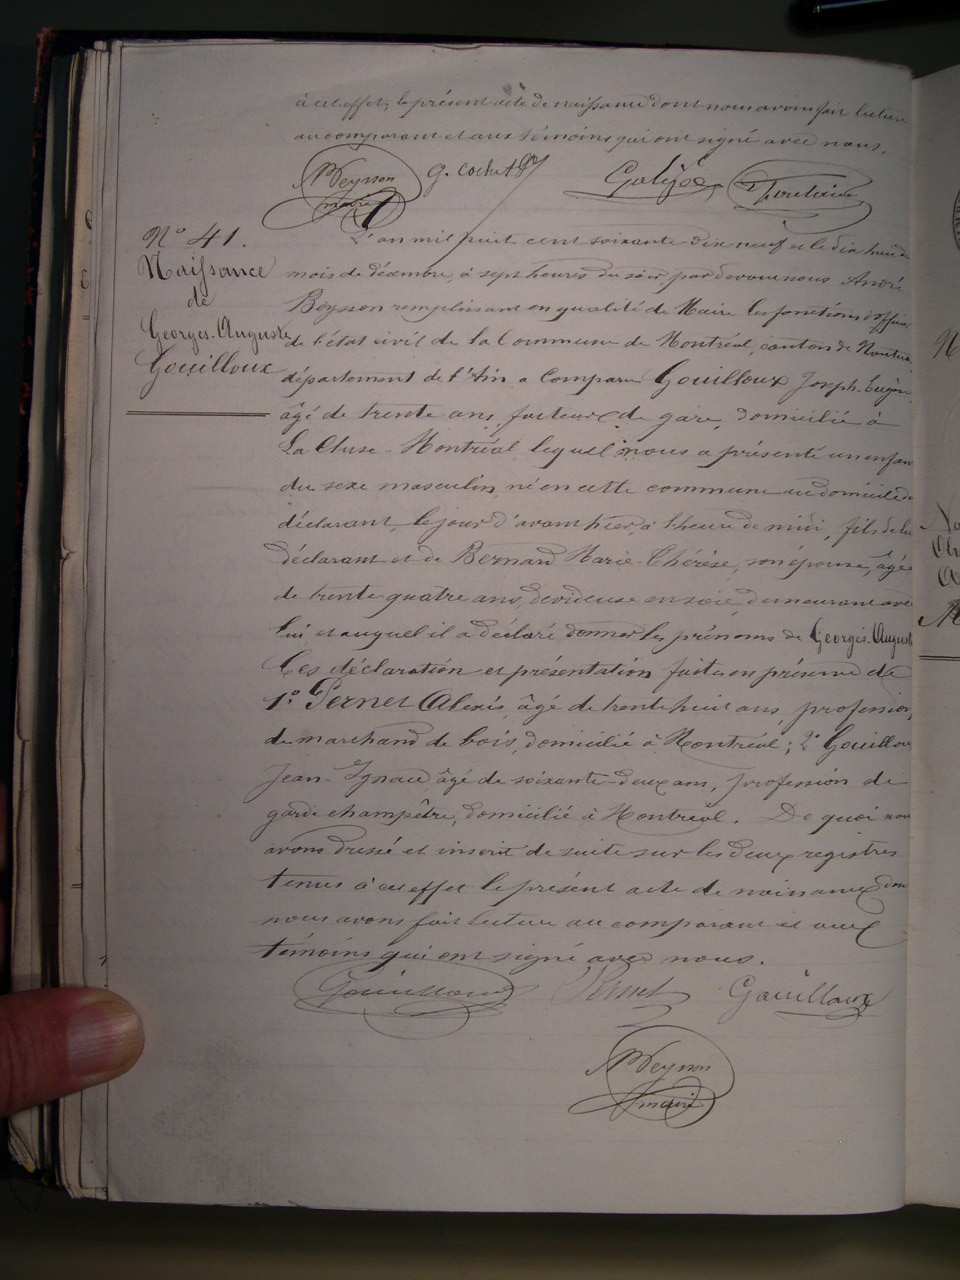 à cet effet, le présent acte de naissance dont nous avons fait lecture
au comparant et aux témoins qui ont signé avec nous.
ABeysson G. Cochet
maire
N° 41.
Naissance
de
Georges-Auguste
Gouilloux
L'an mil huit cent soixante dix neuf et le dix huit du
mois de décembre, à sept heures du soir, par devant nous André
Beysson remplissant en qualité de Maire les fonctions d'officier
de l'état civil de la Commune de Montréal, canton de Nantua
département de l'Ain a comparu Gouilloux Joseph-Eugène
âgé de trente ans, facteur de gare, domicilié à
La Cluse-Montréal lequel nous a présenté un enfant
du sexe masculin, né en cette commune au domicile du
déclarant, le jour d'avant hier, à l'heure de midi, fils de lui
déclarant et de Bernard Marie-Thérèse, son épouse, âgée
de trente quatre ans, dévideuse en soie, demeurant avec
lui et auquel il a déclaré donner les prénoms de Georges-Auguste
Ces déclaration et présentation faites en présence de
1° Pernet Alexis, âgé de trente huit ans, profession
de marchand de bois, domicilié à Montréal; 2° Gouilloux
Jean-Ignace, âgé de soixante-deux ans, profession de
garde champêtre, domicilié à Montréal. De quoi nous
avons dressé et inscrit de suite sur les deux registres
tenus à cet effet le présent acte de naissance dont
nous avons fait lecture au comparant et aux
témoins qui ont signé avec nous.
Gouilloux Pernet Gouilloux
ABeysson
maire